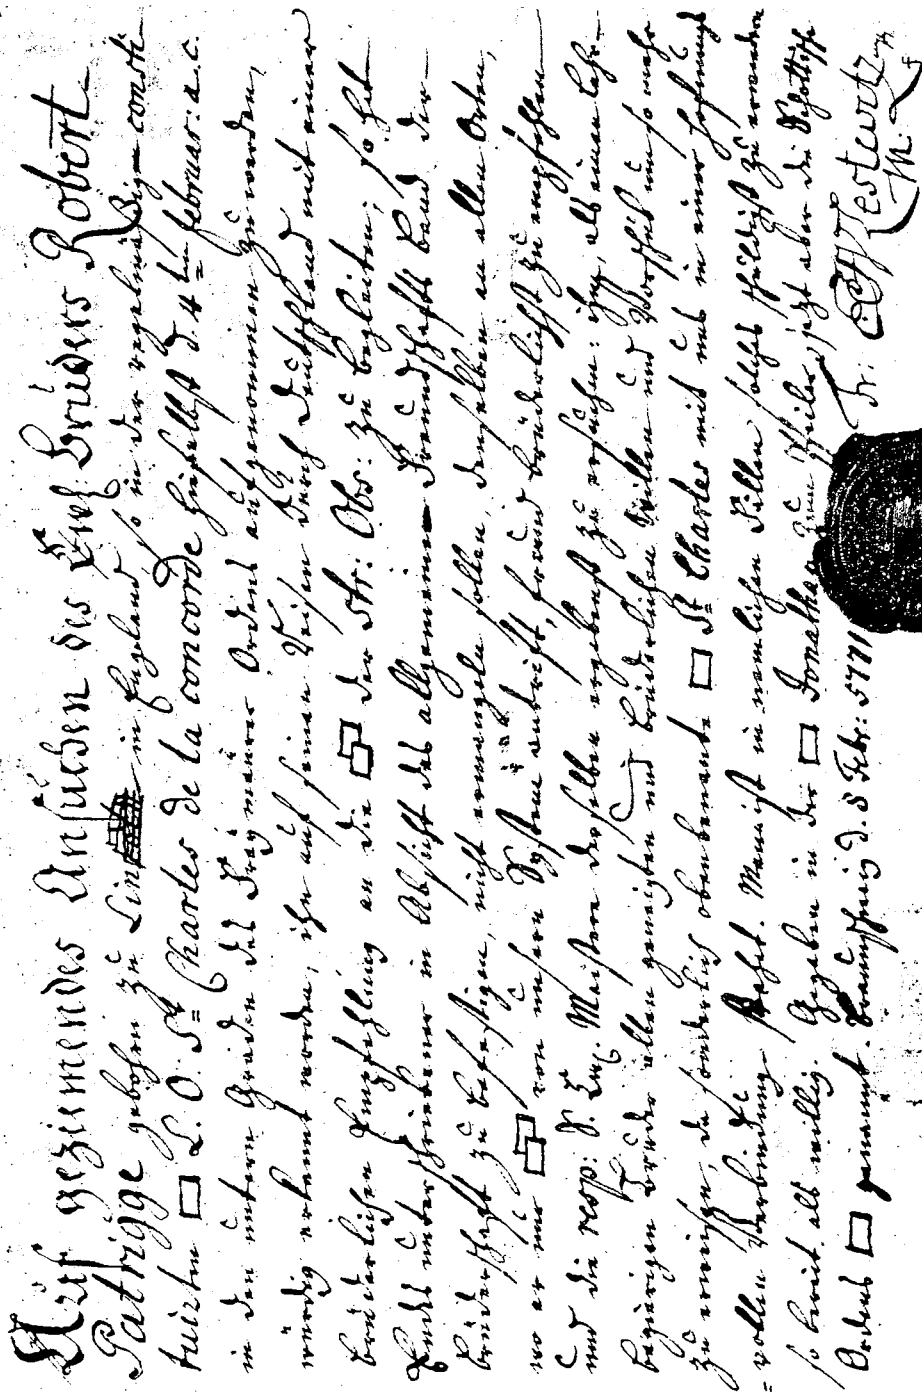 Auf geziemendes Ansuchen des Ew: Bruders Robert
Patrigge gebohren zu Lin in Engeland, so in der regelmäßig-consti
tuirten □ L. O. St Charles de la concorde hieselbst d. 4ten februar: a. c.
in den untern Graden des Freymäurer Ordens aufgenommen zu werden,
würdig erkannt worden; ihn auf seinen Reisen durch Deutschland mit einer
brüderlichen Empfehlung an die der Str: Obs: zu begleiten; so hat
Endes unterschriebener in Absicht des allgemeinen Freundschafts Band der
brüderschafft zu befestigen, nicht ermangeln sollen, denselben an allen Orten,
wo er nur von unsern System antrift, freund brüderlichst zu empfehlen
und die resp: S. Ew. Meistern derselben ergebenst zu ersuchen: ihm, als einem Lehr-
begierigen Bruder allen geneigten und brüderlichen Willen und Vorschub um so mehr
zu erweisen, da sonderlich obenbenante □ St Charles mit uns in einer hofnungs
=vollen Verbindung stehet. Mann ist in nemlichen Fällen solches schuldigst zu erwiedern
so bereit als willig. Gegeben in der □ Jonathan zum Pfeiler, jezt aber die Schottische
Ordens □ genannt. Braunschweig d. 8 Febr: 5771 Fr: